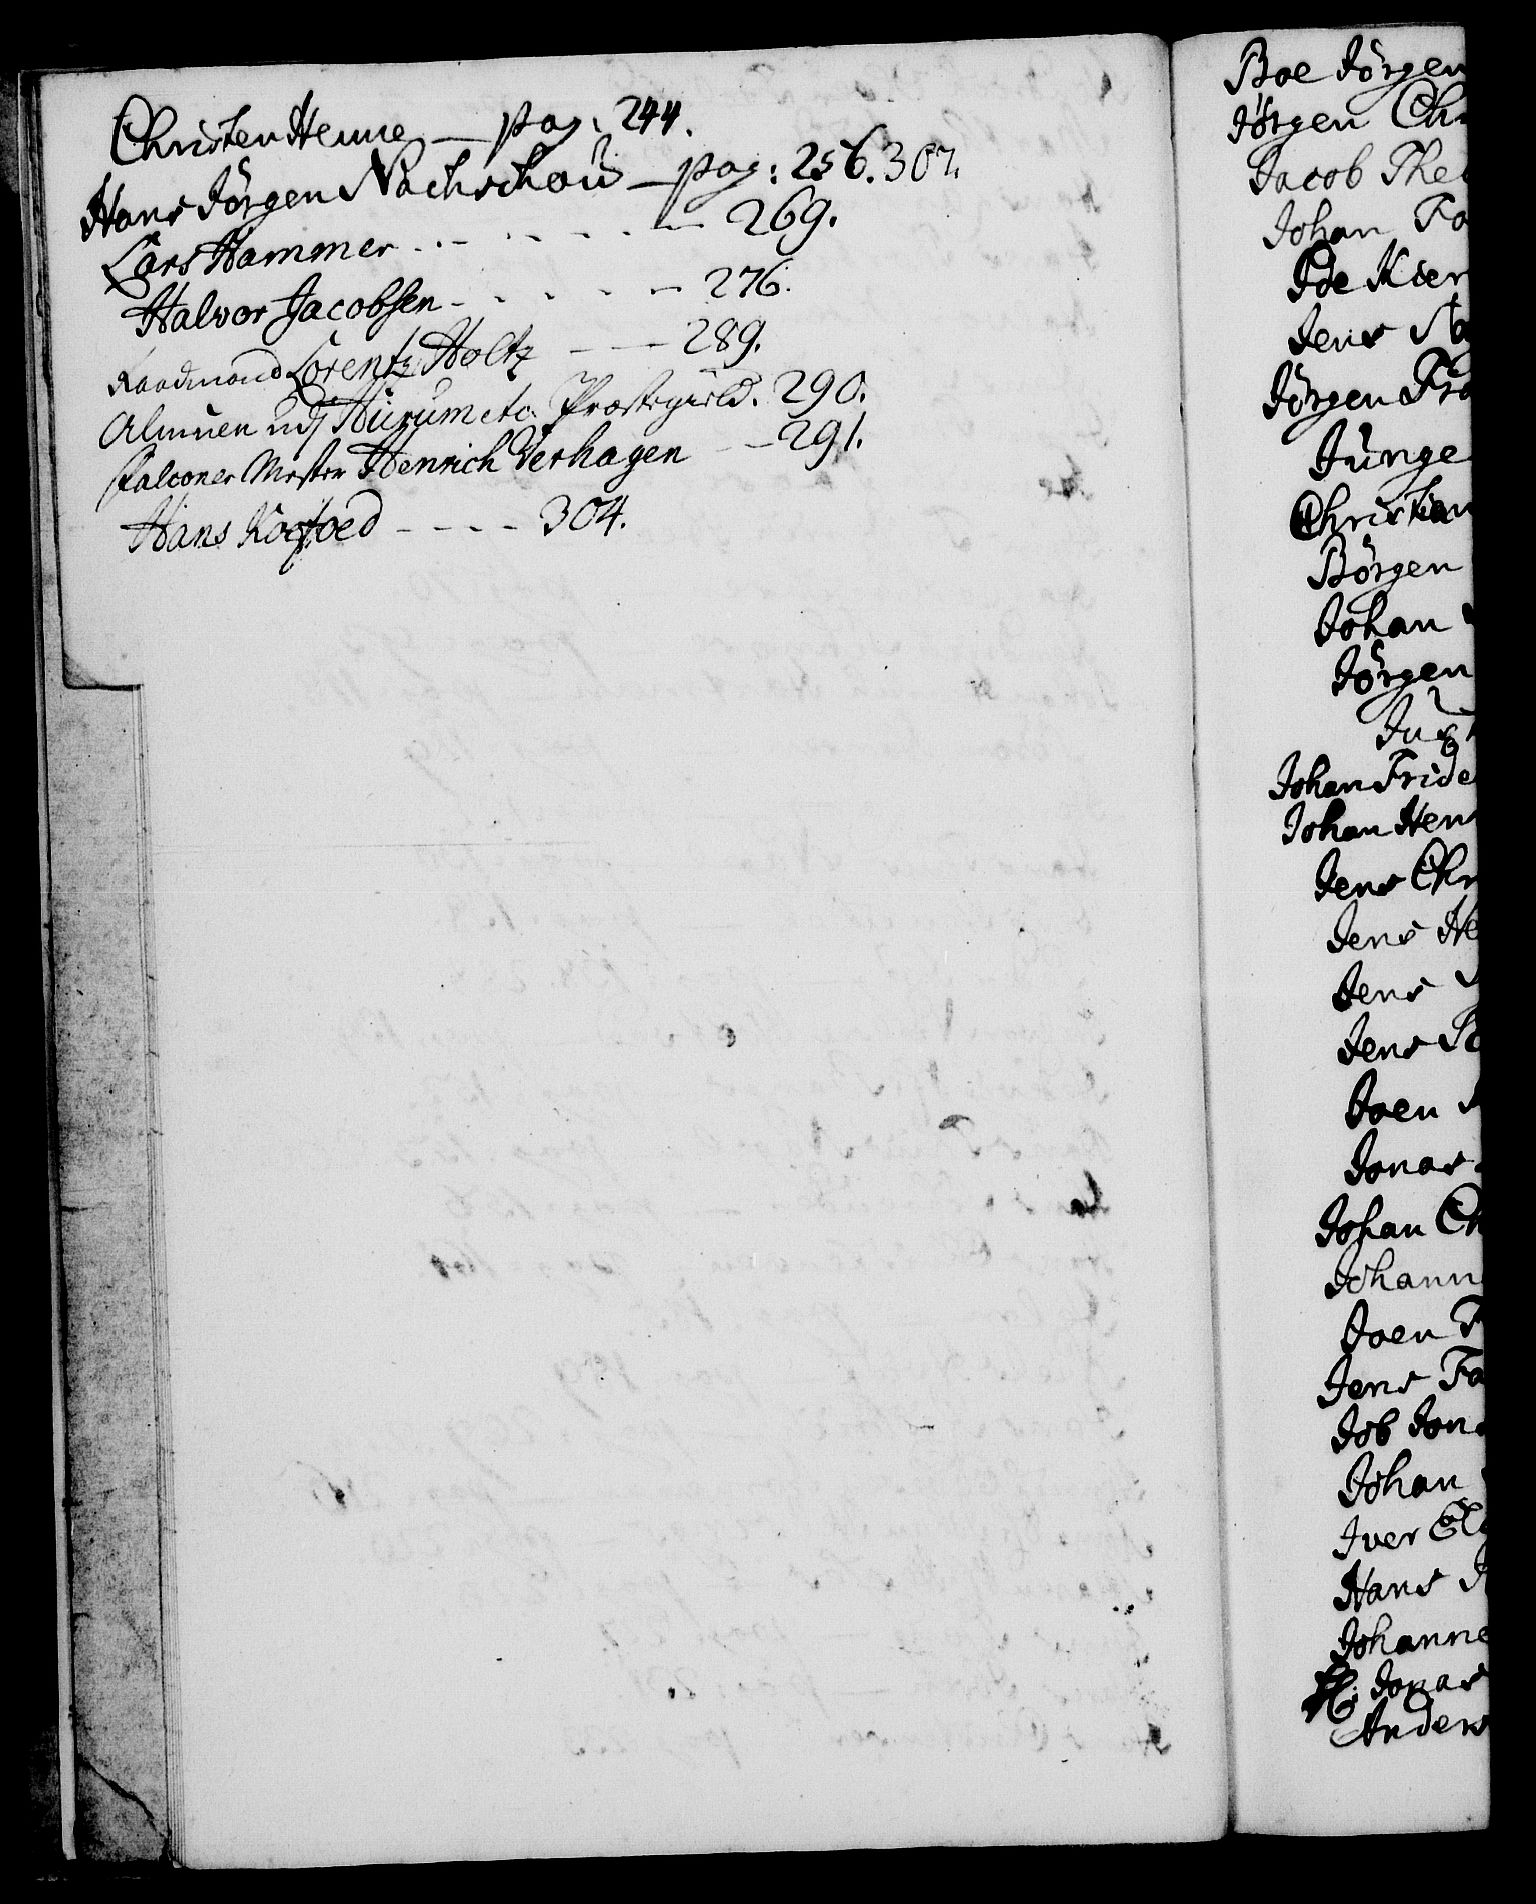 Christen Henne — pag: 244.
Hans Jörgen Nachschou — pag: 256. 307.
Lars Hammer - - - - - - 269.
Halvor Jacobsen - - - - - 276.
Raadmand Lorentz Holtz - - 289.
Almuen udj Hurum etc. Præstegield. 290.
Falconer Mester Henrich Verhagen - 291.
Hans Koefoed - - - - 304.
Boe Jörgen
Jörgen Chr
Jacob
Johan
Jens
Jörgen
Junge
Christian
Börgen
Johan
Jörgen
Johan Fride
Johan Hen
Jens Chr
Jens
Jens
Jens
Joen
Jonas
Johan
Johann
Joen
Jens
Job
Johan
Iver
Hans
Johanne
H: Jonas
Anders